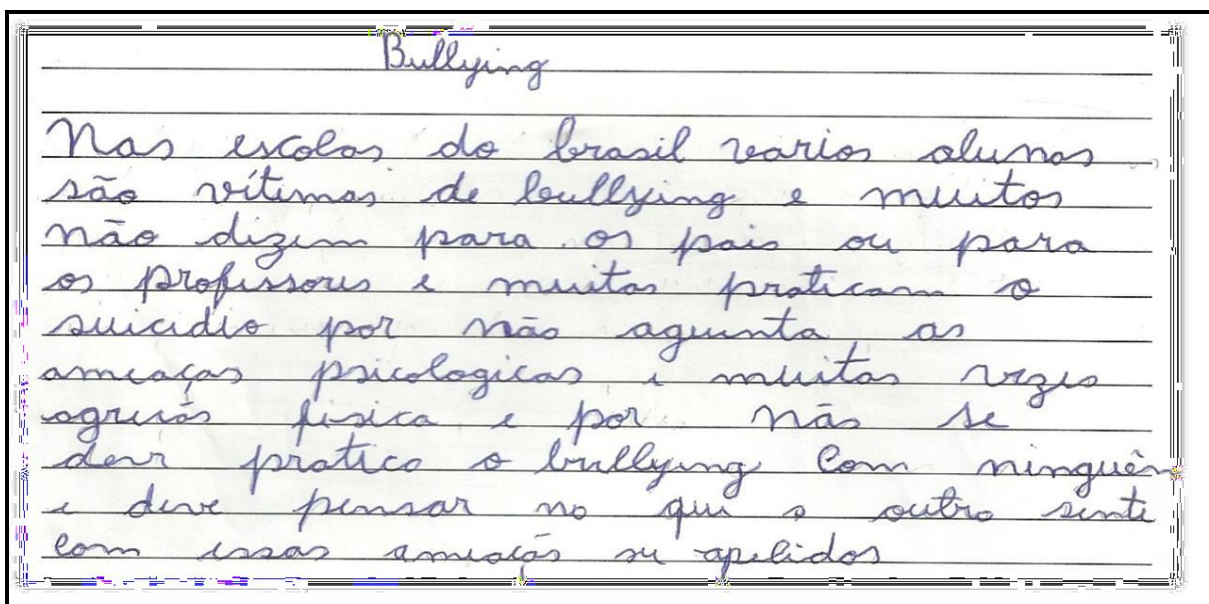 Bullying
Nas escolas do brasil varios alunos
são vítimas de bullying e muitos
não dizem para os pais ou para
os professores e muitas praticam o
suicidio por não aguenta as
ameaças psicologicas e muitas vezes
agreção fisica e por não se
deve pratica o bullyng com ninguên
e deve pensar no que o outro sente
com essas ameaças ou apelidos